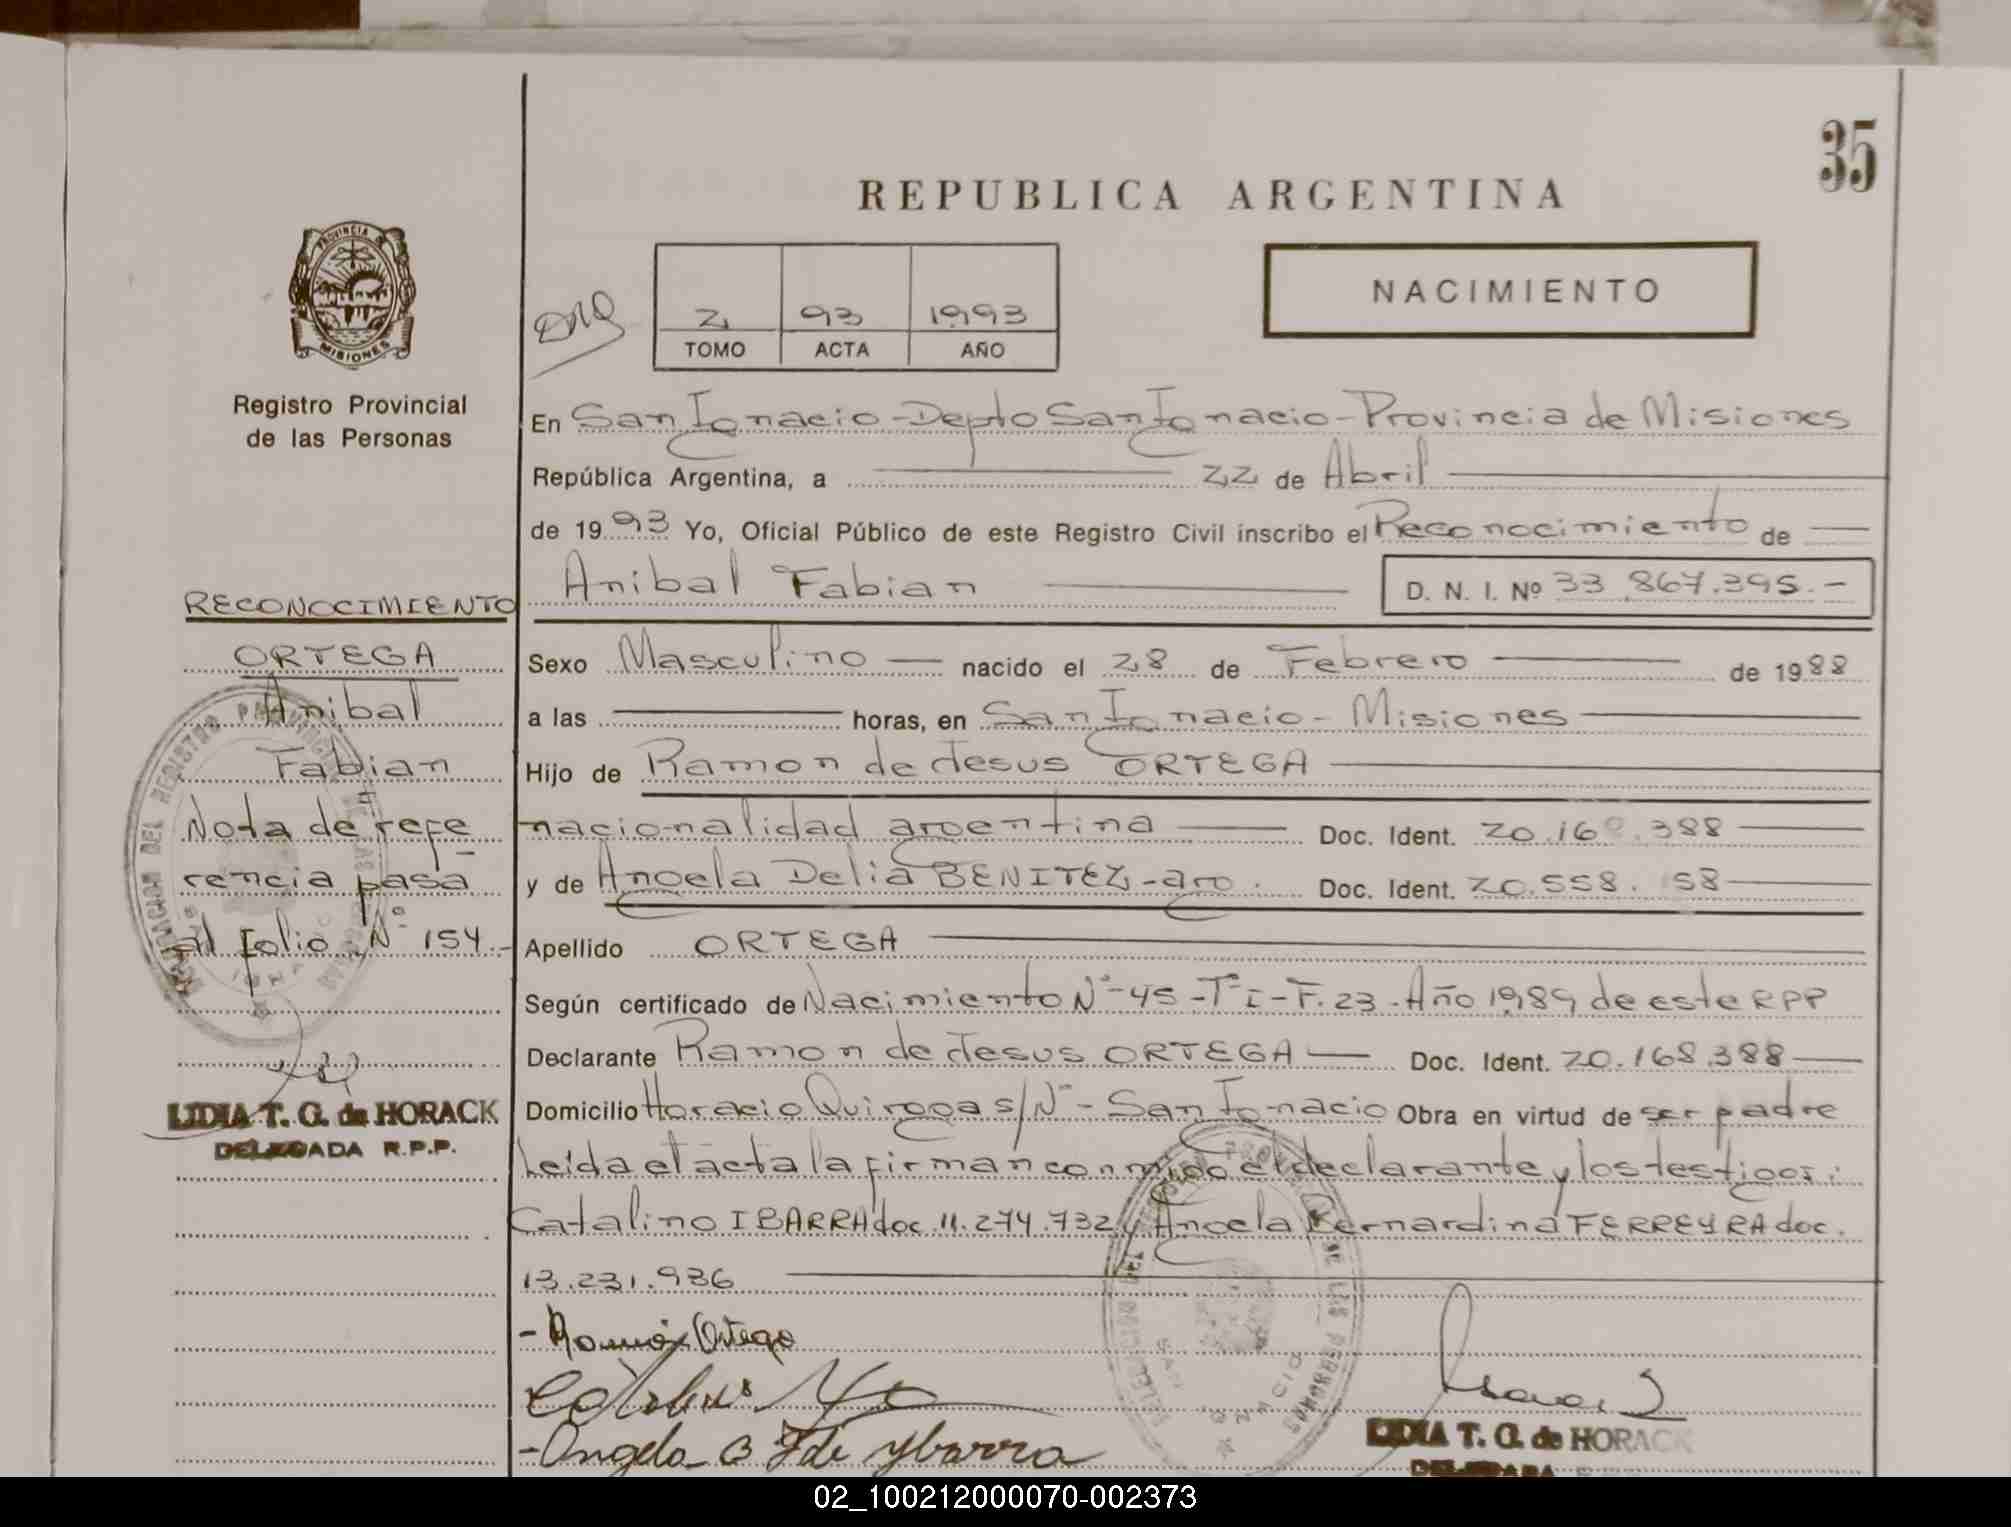 35
REPUBLICA ARGENTINA
PROVINCIA DE
MISIONES
Registro Provincial
de las Personas
2 93 1993
TOMO ACTA AÑO
NACIMIENTO
En San Ignacio - Depto San Ignacio - Provincia de Misiones
República Argentina, a 22 de Abril
de 1993 Yo, Oficial Público de este Registro Civil inscribo el Reconocimiento de
Anibal Fabian D. N. I. Nº 33.867.395.-
Sexo Masculino nacido el 28 de Febrero de 1988
a las horas, en San Ignacio - Misiones
Hijo de Ramon de Jesus ORTEGA
nacionalidad argentina Doc. Ident. 20.168.388
y de Angela Delia BENITEZ - arg. Doc. Ident. 20.558. 58
Apellido ORTEGA
Según certificado de Nacimiento Nº-45-Tº I-F.23-Año 1989 de este RPP
Declarante Ramon de Jesus ORTEGA Doc. Ident. 20.168.388
Domicilio Horacio Quiroga s/Nº - San Ignacio Obra en virtud de ser padre
Leida el acta la firman conmigo el declarante y los testigos:
Catalino IBARRA doc. 11.274.732 y Angela Bernardina FERREYRA doc.
13.231.936
- Ramón Ortega
- Angela B F de Ybarra
LIDIA T. G. de HORACK
RECONOCIMIENTO
ORTEGA
Anibal
Fabian
Nota de refe
rencia pasa
al folio Nº 154.-
LIDIA T. G. de HORACK
DELEGADA R.P.P.
02_100212000070-002373